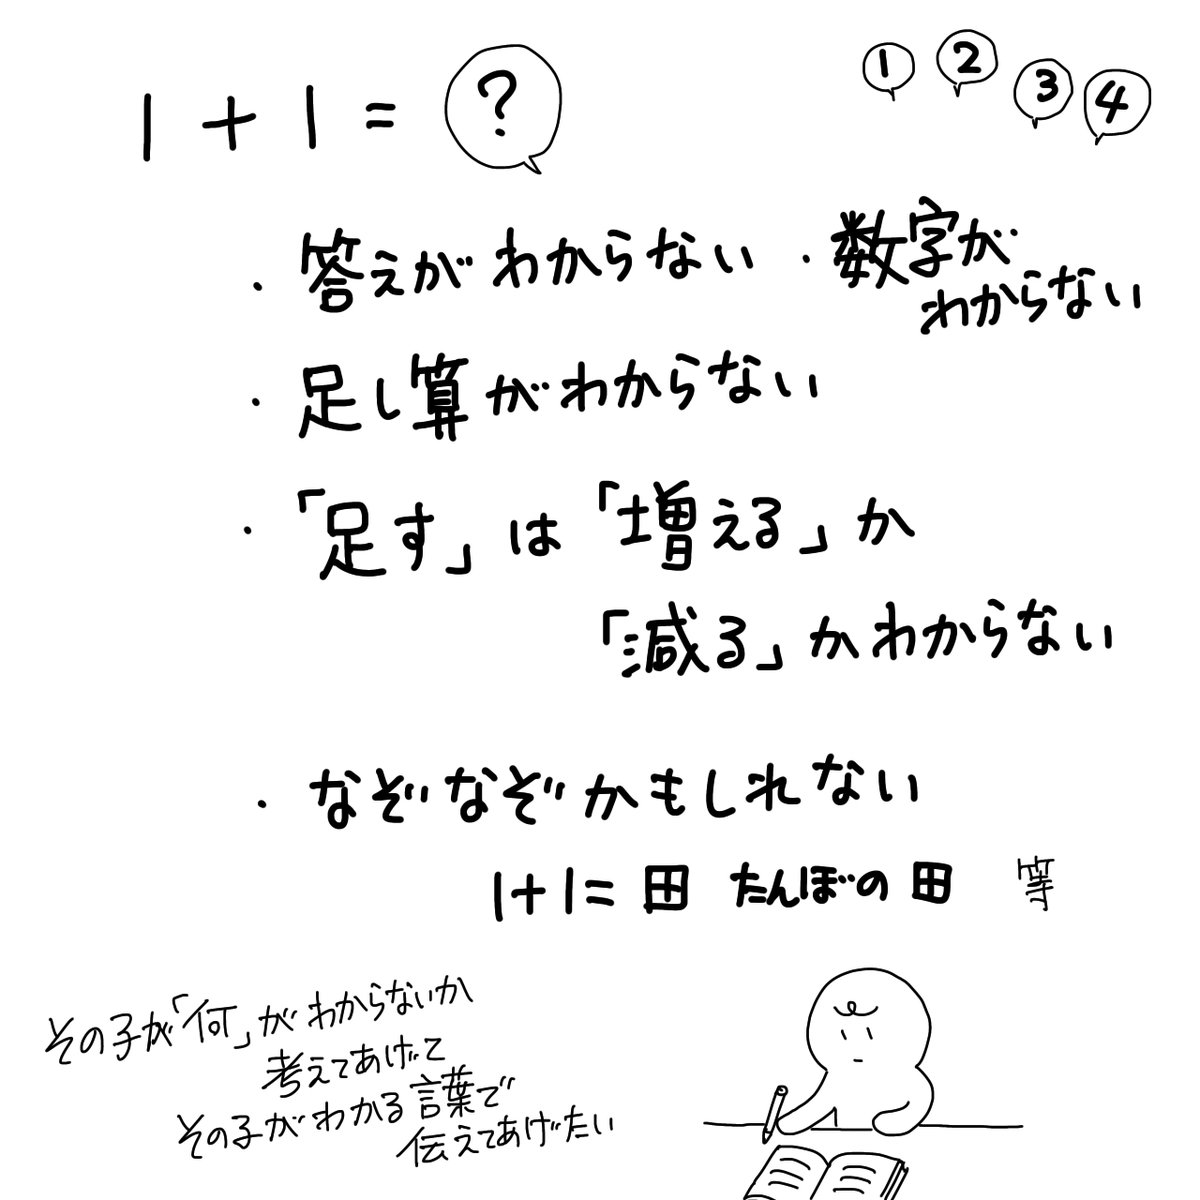 1+1=?
1 2 3 4
・答えがわからない
・数字が
わからない
・足し算がわからない
・「足す」は「増える」か
「減る」かわからない
・なぞなぞかもしれない
1+1=田 たんぼの田 等
その子が「何」がわからないか
考えてあげて
その子がわかる言葉で
伝えてあげたい